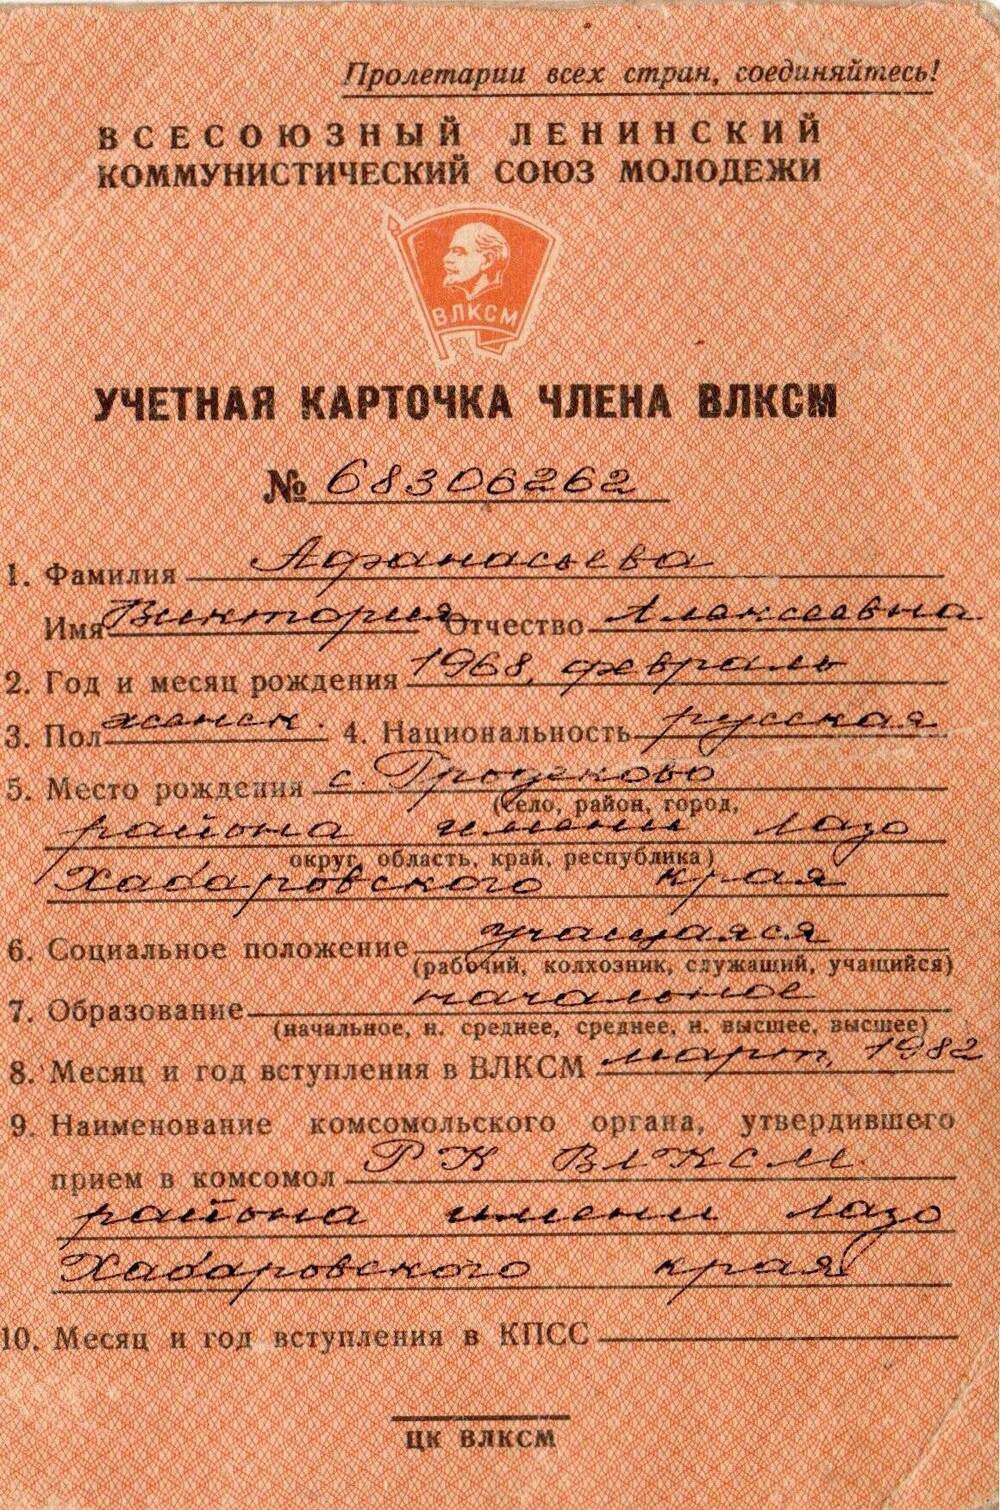 Пролетарии всех стран, соединяйтесь!
ВСЕСОЮЗНЫЙ ЛЕНИНСКИЙ
КОММУНИСТИЧЕСКИЙ СОЮЗ МОЛОДЕЖИ
ВЛКСМ
УЧЕТНАЯ КАРТОЧКА ЧЛЕНА ВЛКСМ
№ 68306262
1. Фамилия Афанасьева
Имя Виктория Отчество Алексеевна
2. Год и месяц рождения 1968, февраль
3. Пол женск. 4. Национальность русская
5. Место рождения с. Гродеково
(село, район, город,
района имени Лазо
округ, область, край, республика)
Хабаровского края
6. Социальное положение учащаяся
(рабочий, колхозник, служащий, учащийся)
7. Образование начальное
(начальное, н. среднее, среднее, н. высшее, высшее)
8. Месяц и год вступления в ВЛКСМ март, 1982
9. Наименование комсомольского органа, утвердившего
прием в комсомол РК ВЛКСМ
района имени Лазо
Хабаровского края
10. Месяц и год вступления в КПСС
ЦК ВЛКСМ